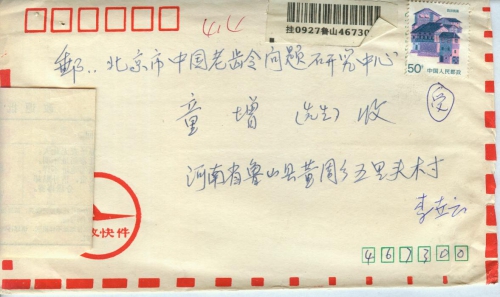 44
挂0927鲁山46730
50分
中国人民邮政
邮:北京市中国老龄问题研究中心
童增(先生)收
河南省鲁山县黄周乡五里头村
快件
467300